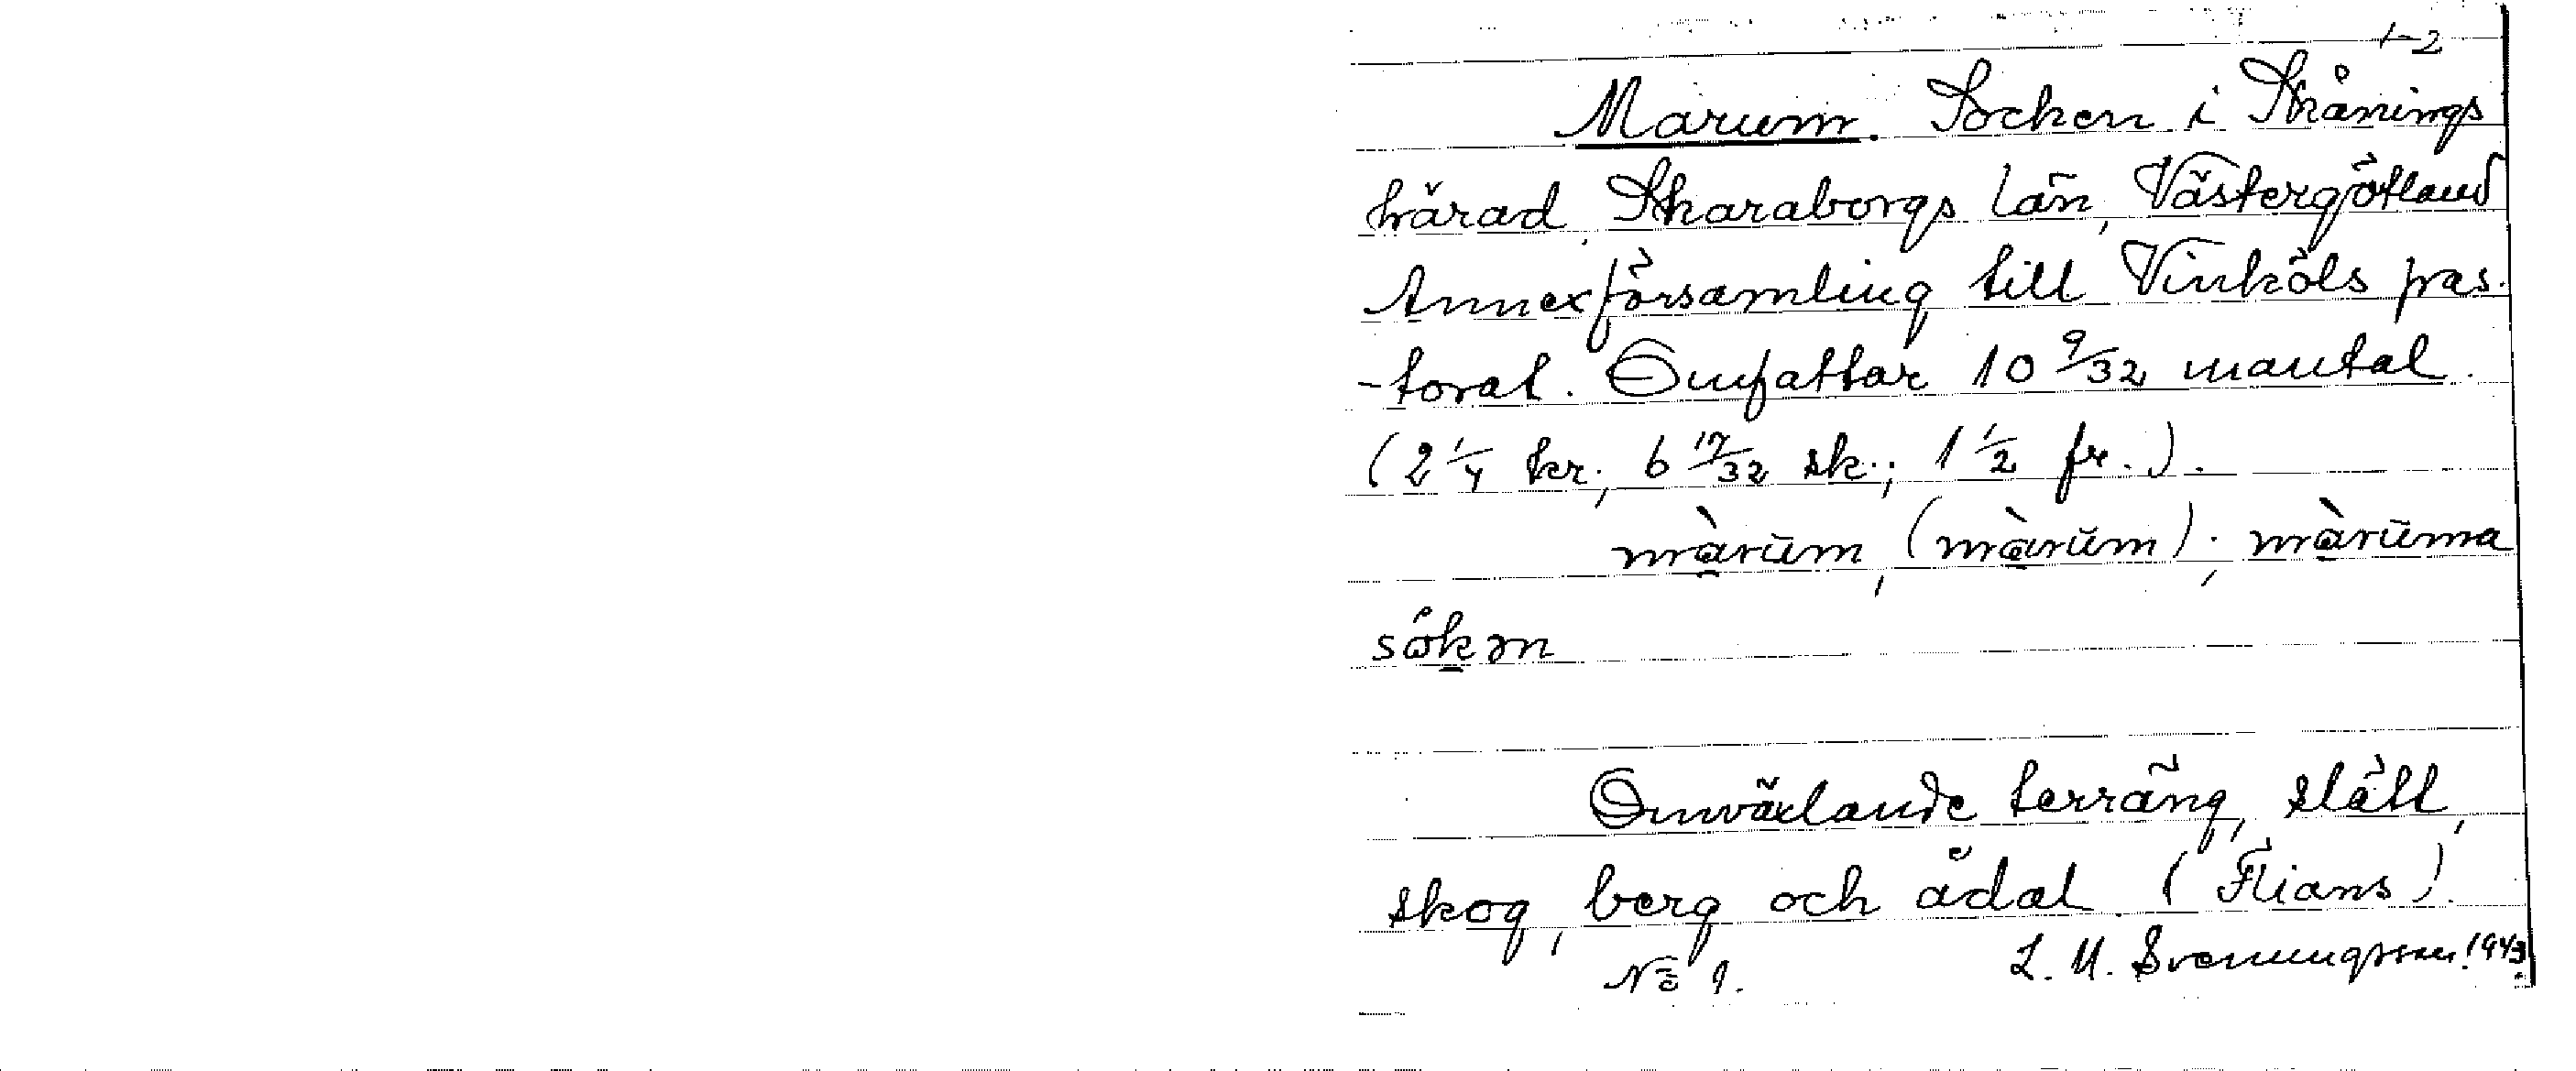 1-2
Marum. Socken i Skånings
härad, Skaraborgs län, Västergötland
Annexförsamling till Vinköls pas-
-torat. Omfattar 10 9/32 mantal.
(2 1/4 kr., 6 17/32 sk.; 1 1/2 fr.).
màrum, (màrum); màruma
sökən
Omväxlande terräng, slätt,
skog, berg och ådal (Flians).
No 1. L. M. Svenungsson. 1943.